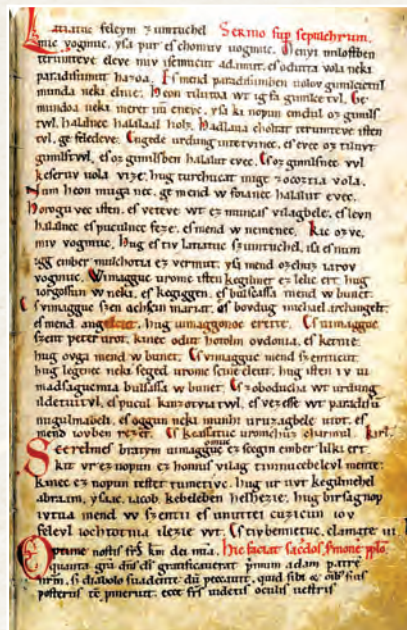 Latiatuc feleym zumtuchel Sermo sup sepulchrum.
mic vogmuc. yſa pur eſ chomuv uogmuc. Menyi miloſtben
terumteve eleve miv iſemucut adamut. eſ odutta vola neki
paradiſumut hazoa. Eſ mend paradiſumben uolov gimilcictul
munda neki elnie. Heon tilutoa wt ig fa gimilce tvl. Ge
mundoa neki meret num eneyc. yſa ki nopun emdul oz gimilſ
tvl. halalnec halalaal holz. Hadlaua choltat terumteve iſten
tvl. ge feledeve. Engede urdung intetvinec. eſ evec oz tiluvt
gimilſtvl. eſ oz gimilſben halalut evec. Eſ oz gimilſnec vvl
keſeruv uola vize. hug turchucat mige zocoztia vola.
Num heon muga nec. ge mend w foianec halalut evec.
Horogu vec iſten. eſ veteve wt ez muncaſ vilagbele. eſ levn
halalnec eſ puculnec feze. eſ mend w nemenec. Kic ozvc.
miv vogmuc. Hug eſ tiv latiatuc ſzumtuchel. iſa eſ num
igg ember mulchotia ez vermut. yſa mend ozchuz iarov
vogmuc. Wimagguc uromc iſten kegilmet ez lelic ert. hug
iorgoſſun w neki. eſ kegiggen. eſ bulſaſſa mend w bunet.
Eſ vimagguc ſzen achſcin mariat. eſ bovdug michael archangelt.
eſ mend angelcut. hug uimaggonoc erette. Eſ uimagguc
ſzent peter urot. kinec odut hotolm ovdonia. eſ ketnie.
hug ovga mend w bunet. Eſ vimagguc mend ſzentucut.
hug legenec neki ſeged uromc ſcine eleut. hug iſten iv ui
madſagucmia bulſaſſa w bunet. Eſ zoboducha wt urdung
ildetuitvl. eſ pucul kinzotviatvl. eſ vezeſſe wt paradiſu
nugulmabeli. eſ oggun neki munhi uruzagbele utot. eſ
mend iovben rezet. Eſ keaſſatuc uromchuz charmul. kirl.
Scerelmeſ bratym uimagguc omuc ez ſcegin ember lilki ert.
kit vr ez nopun ez homuſ vilag timnucebelevl mente.
kinec ez nopun teſtet tumetivc. hug ur uvt kegilmehel
abraam. yſaac. iacob. kebeleben helhezie. hug birſagnop
ivtua mend w ſzentii eſ unuttei cuzicun iov
felevl iochtotnia ilezie wt. Eſ tivbennetuc. clamate iii.
Optime noſtiſ frſ km dei mia. Hic faciat ſacdoſ ſmone pplo.
quanta gra dnſ dſ gratificauerat pmum adam patre
nrm. ſi diabolo ſuadente du peccauit. quid ſibi & oib ſuiſ
poſteriſ te pmeruit. ecce frſ uidetiſ oculiſ ueſtriſ